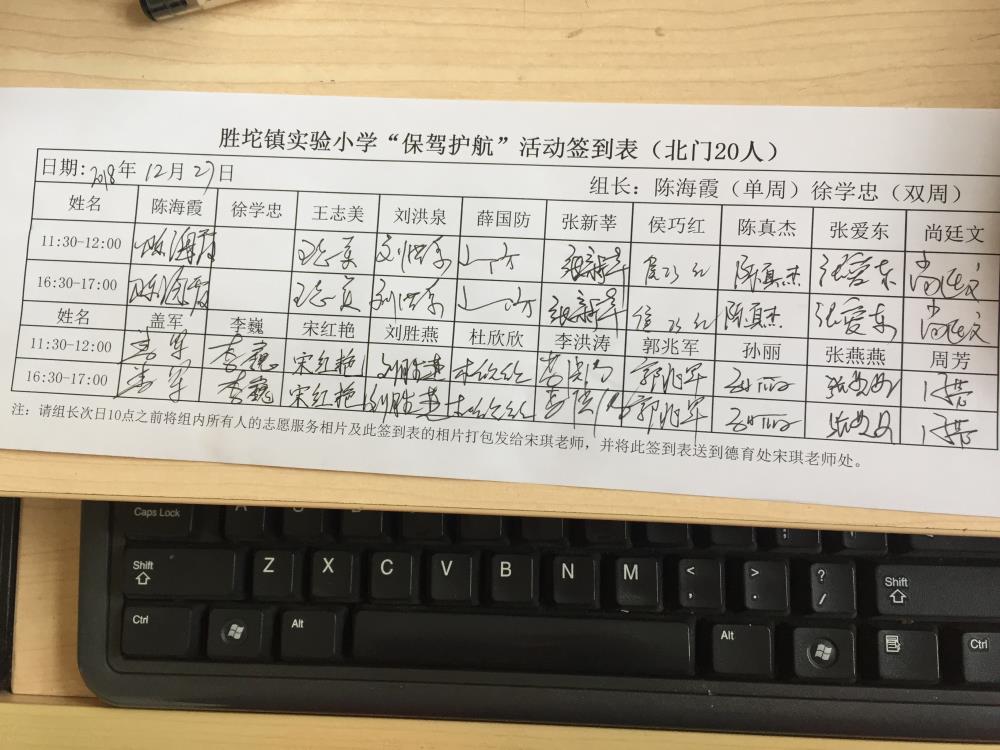 胜坨镇实验小学“保驾护航”活动签到表（北门20人）
日期：2018年 12月 27日 组长：陈海霞（单周）徐学忠（双周）
姓名 陈海霞 徐学忠 王志美 刘洪泉 薛国防 张新莘 侯巧红 陈真杰 张爱东 尚廷文
11:30-12:00 陈海霞 王志美 刘洪泉 张新莘 侯巧红 陈真杰 张爱东 尚廷文
16:30-17:00 陈海霞 王志美 刘洪泉 张新莘 侯巧红 陈真杰 张爱东 尚廷文
姓名 盖军 李巍 宋红艳 刘胜燕 杜欣欣 李洪涛 郭兆军 孙丽 张燕燕 周芳
11:30-12:00 盖军 李巍 宋红艳 刘胜燕 杜欣欣 李洪涛 郭兆军 孙丽 周芳
16:30-17:00 盖军 李巍 宋红艳 刘胜燕 杜欣欣 郭兆军 孙丽 周芳
注：请组长次日10点之前将组内所有人的志愿服务相片及此签到表的相片打包发给宋琪老师，并将此签到表送到德育处宋琪老师处。
Caps Lock A S D
Shift Z X C V B N M < , > . ? / Shift
Ctrl Alt Alt Ctrl